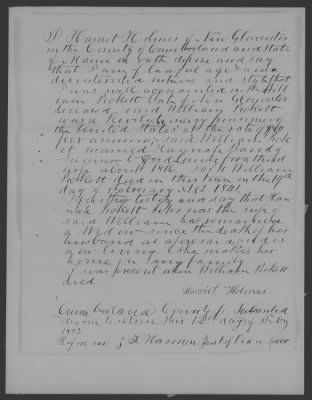 I Harriet Holmes of New Gloucester
in the County of Cumberland and State
of Maine on oath depose and say
that I am of lawful age and a
disinterested witness and state that
I was well acquainted with Will
iam Rokett late of New Gloucester
deceased, said William Rokett
was a Revolutionary pensioner of
the United States at the rate of
per annum, said William Rok
ett married Hannah
Sumner Oxford County for a third
wife about 1816 said William
Rokett died in this town on the 19th
day of February A.D. 1841,
I further certify and say that Han
nah Rokett who was the wife of
said William has remained
a Widow since the death of her
husband as aforesaid and is
now living & she makes her
home in my family
I was present when William Rokett
died
Harriet Holmes
Cumberland County Ss Subscribed
sworn to before me this 12 day of
Before me Just of Peace